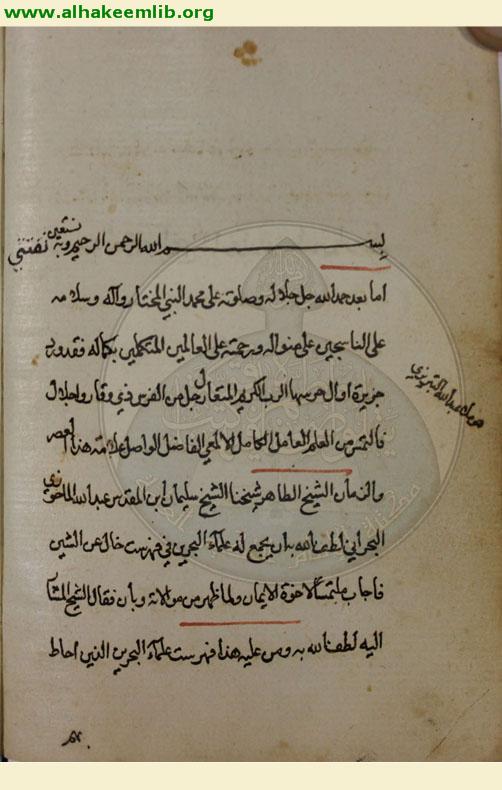 www.alhakeemlib.org
بسم الله الرحمن الرحيم وبه نستعين
اما بعد حمد الله جل جلاله وصلوته على محمد النبي المختار وآله وسلامه
على الناسجين على منواله ورحمته على العالمين المتكملين بكماله فقد ورد
جزيرة اوال حرسها الرب الكريم المتعال رجل من الفرس ذي وقار واجلال
فالتمس من العلم العامل الكامل الالمعي الفاضل الواصل علامة هذا العصر
والزمان الشيخ الطاهر شيخنا الشيخ سليمان ابن المقدس عبد الله الماحوزي
البحراني لطف الله به ان يجمع له علماء البحرين في فهرست خال عن الشين
فاجاب ملتمسه لاخوة الايمان ولما ظهر من من ولائه وبان فقال الشيخ المشار
اليه لطف الله به ومن عليه هذا فهرست علماء البحرين الذين احاط
هو ملا عبد الله التبريزي
بهم